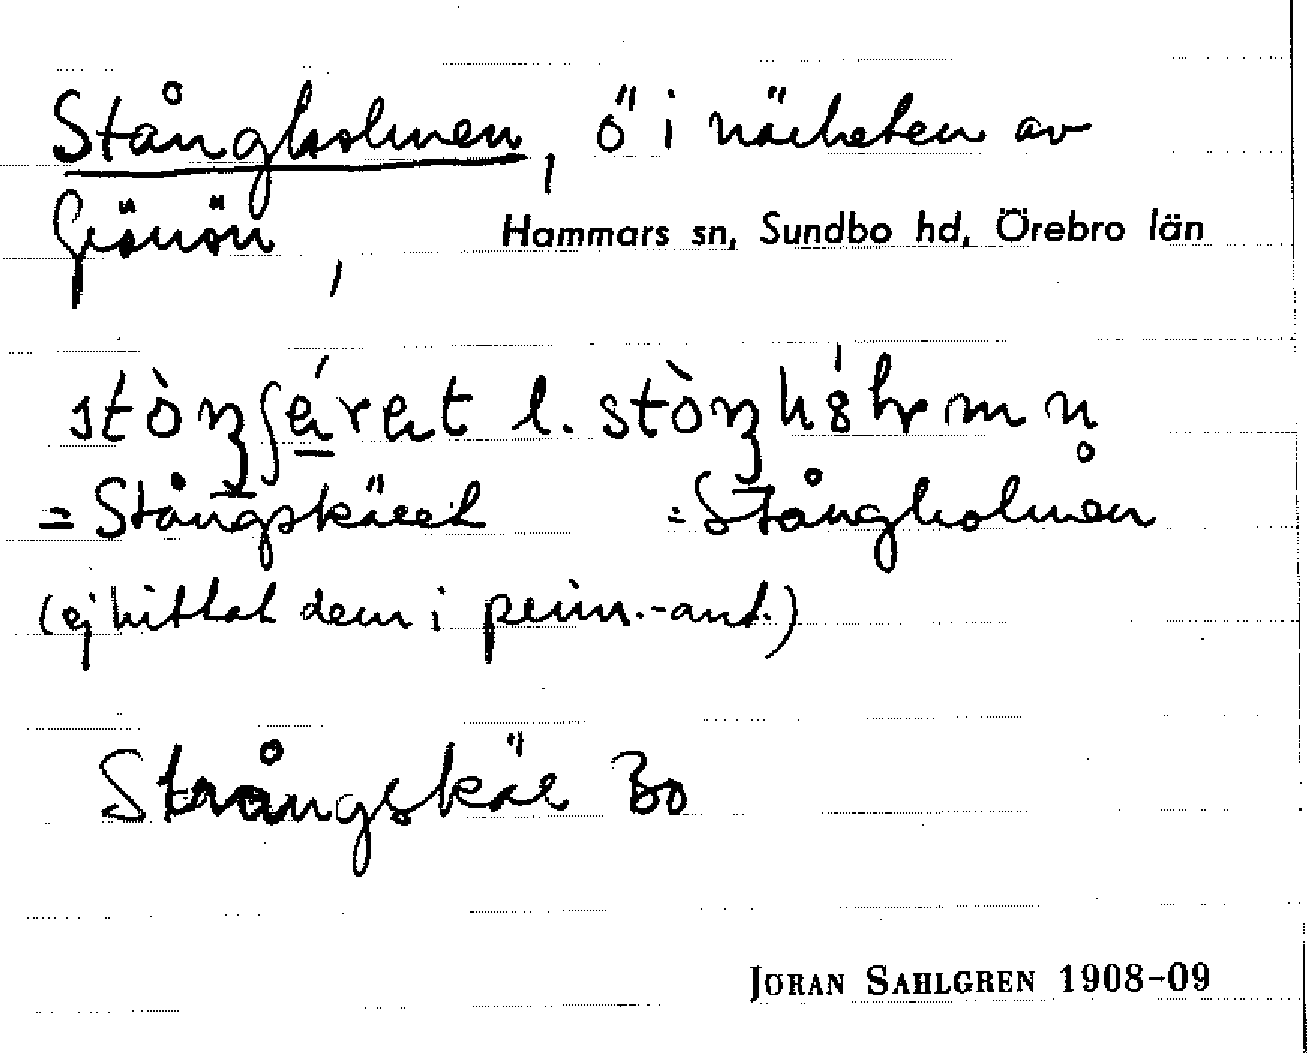 Stångholmen, ö i närheten av
Grönön, Hammars sn, Sundbo hd, Örebro län
l.
= Stångskäret = Stångholmen
(ej hittat dem i prim.-ant.)
Strångskär Bo
JÖRAN SAHLGREN 1908-09